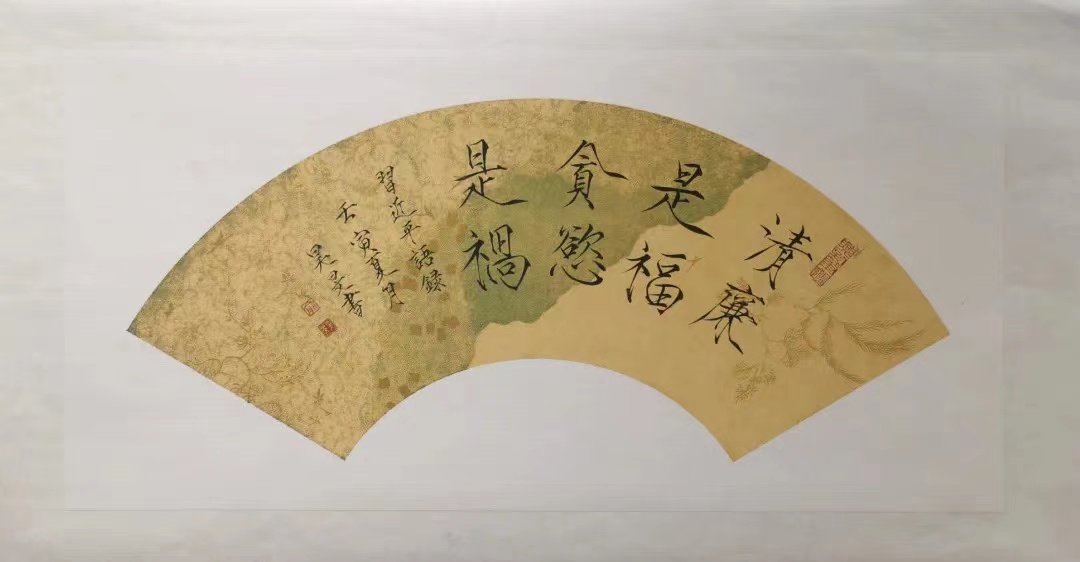 清廉
是福
貪慾
是禍
習近平語録
壬寅夏月
昊旻書